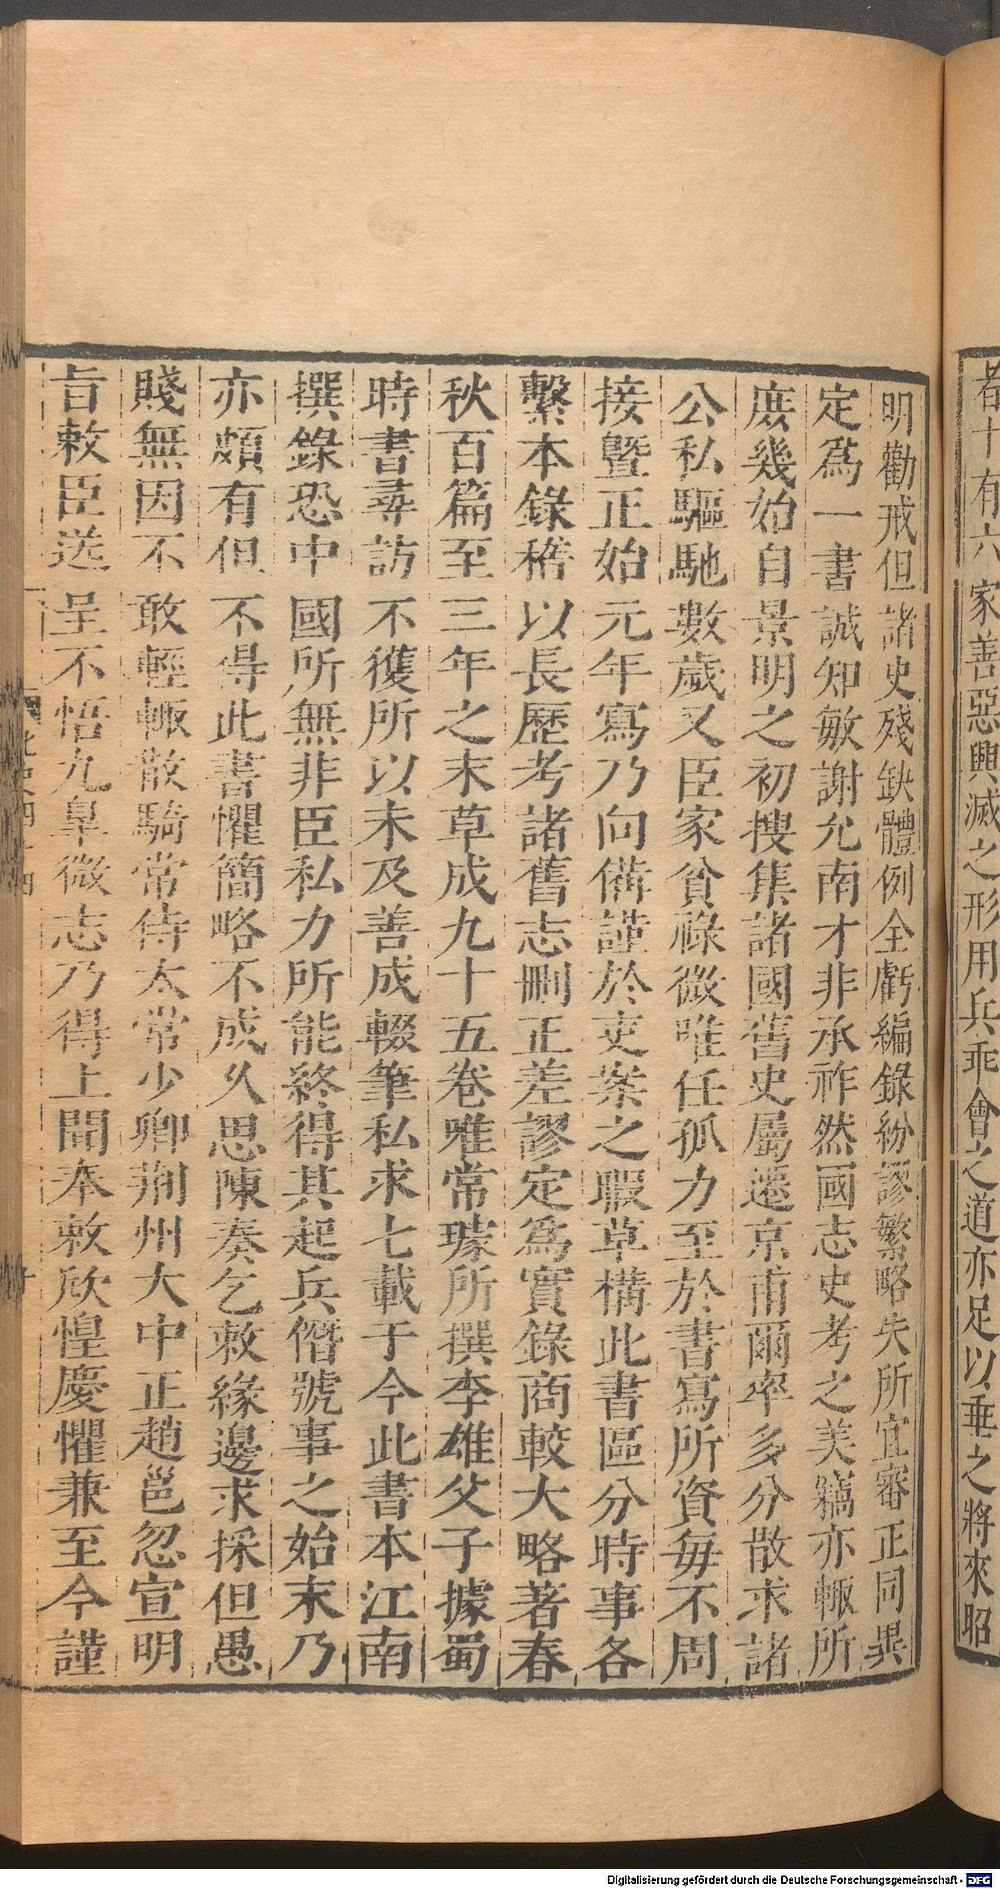 者十有六家善惡興滅之形用兵乖會之道亦足以垂之將來昭
明勸戒但諸史殘缺體例全虧編錄紛謬繁略失所宜審正同異
定爲一書誠知敏謝允南才非承祚然國志史考之美竊亦輒所
庶幾始自景明之初搜集諸國舊史屬遷京甫爾率多分散求諸
公私驅馳數歲又臣家貧祿微唯任孤力至於書寫所資每不周
接曁正始元年寫乃向備謹於吏案之暇草構此書區分時事各
繫本錄稽以長歷考諸舊志刪正差謬定爲實錄商較大略著春
秋百篇至三年之末草成九十五卷唯常璩所撰李雄父子據蜀
時書尋訪不獲所以未及善成輟筆私求七載于今此書本江南
撰錄恐中國所無非臣私力所能終得其起兵僭號事之始末乃
亦頗有但不得此書懼簡略不成久思陳奏乞敕緣邊求採但愚
賤無因不敢輕輒散騎常侍太常少卿荆州大中正趙邕忽宣明
旨敕臣送呈不悟九臯微志乃得上聞奉敕欣惶慶懼兼至今謹
北史四十四
Digitalisierung gefördert durch die Deutsche Forschungsgemeinschaft - DFG